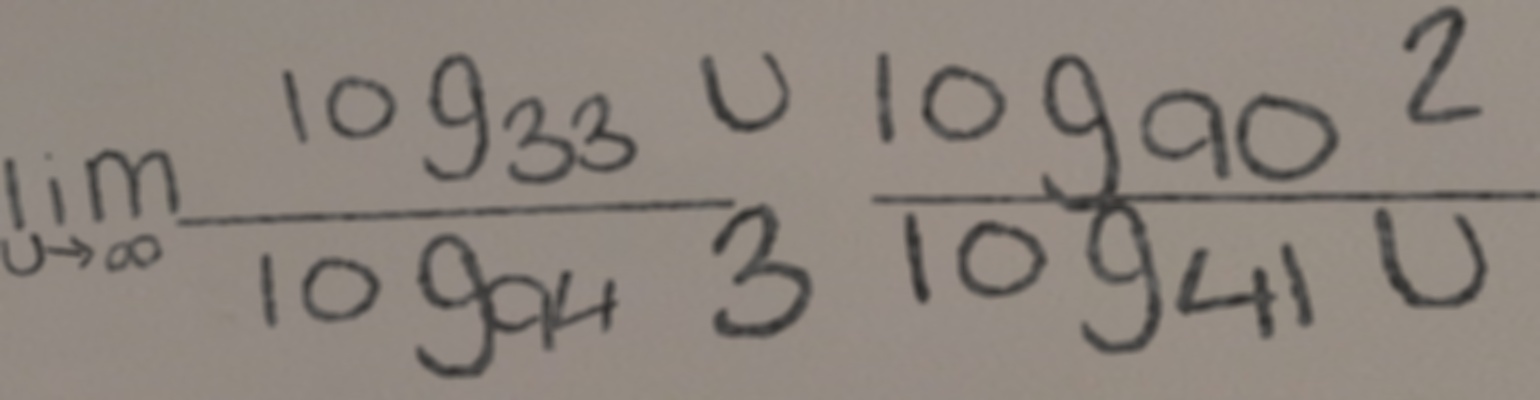 lim u→∞ log₃₃ u / log₉₄ 3 log₉₀ 2 / log₄₁ u